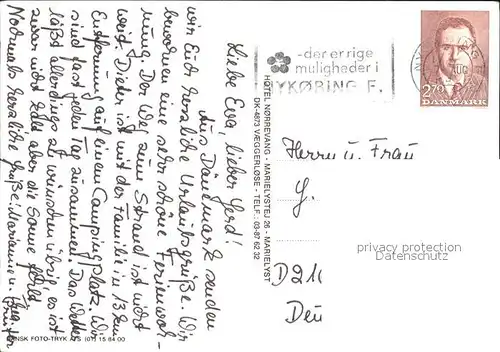 Liebe Eva, lieber Gerd!
Aus Dänemark senden
wir Euch herzliche Urlaubsgrüße. Wir
bewohnen eine sehr schöne Ferienwoh-
nung. Der Weg zum Strand ist nicht
weit. Dieter ist mit der Familie in 13 km
Entfernung auf einem Campingplatz. Wir
sind fast jeden Tag zusammen. Das Wetter
läßt allerdings zu wünschen übrig, es ist
zwar nicht kalt aber die Sonne fehlt
Nochmals herzliche Grüße: Marianne u.
DANSK FOTO-TRYK A/S (01) 15 84 00
HOTEL NØRREVANG - MARIELYSTEJ 26 - MARIELYST
DK-4873 VÆGGERLØSE - TELF.: 03-87 62 32
-der er rige
muligheder i
NYKØBING F.
AUG
2.70
DANMARK
Herrn u. Frau
G.
D 21
Deu
privacy protection
AnsichtskartenCenter